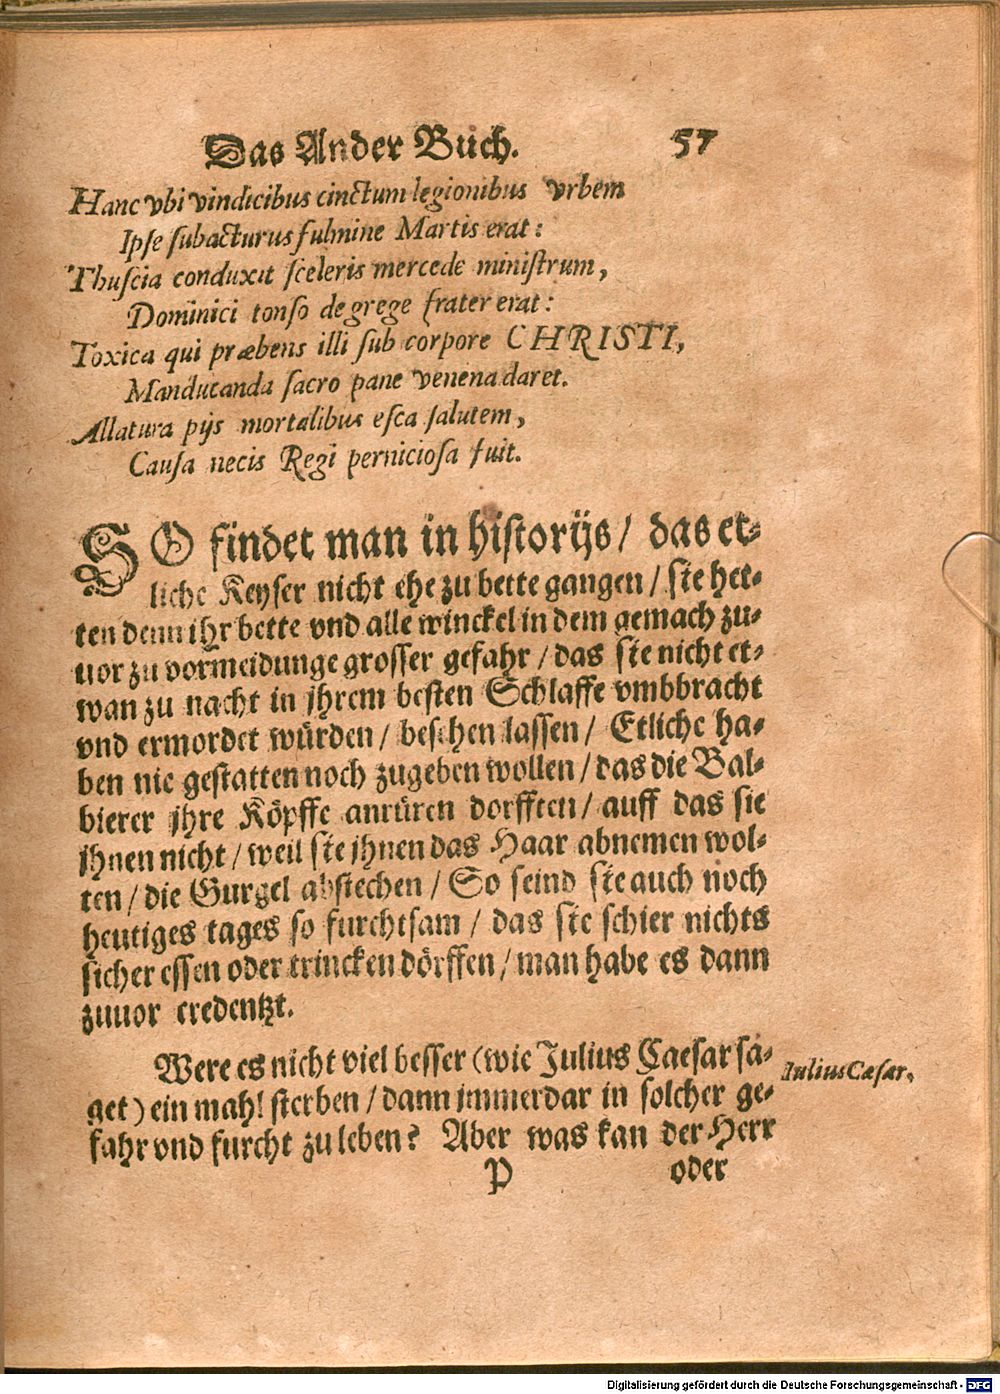 Das Ander Buch. 57
Hanc vbi vindicibus cinctum legionibus vrbem
Ipse subacturus fulmine Martis erat:
Thuscia conduxit sceleris mercede ministrum,
Dominici tonso de grege frater erat:
Toxica qui præbens illi sub corpore CHRISTI,
Manducanda sacro pane venena daret.
Allatura pijs mortalibus esca salutem,
Causa necis Regi perniciosa fuit.
SO findet man in historijs / das et-
liche Keyser nicht ehe zu bette gangen / sie het-
ten denn ihr bette vnd alle winckel in dem gemach zu-
uor zu vormeidunge grosser gefahr / das sie nicht et-
wan zu nacht in jhrem besten Schlaffe vmbbracht
vnd ermordet würden / besehen lassen / Etliche ha-
ben nie gestatten noch zugeben wollen / das die Bal-
bierer jhre Köpffe anrüren dorfften / auff das sie
jhnen nicht / weil sie jhnen das Haar abnemen wol-
ten / die Gurgel abstechen / So seind sie auch noch
heutiges tages so furchtsam / das sie schier nichts
sicher essen oder trincken dörffen / man habe es dann
zuuor credentzt.
Were es nicht viel besser (wie Julius Caesar sa-
get) ein mahl sterben / dann jmmerdar in solcher ge-
fahr vnd furcht zu leben? Aber was kan der Herr
Iulius Cæsar.
P oder
Digitalisierung gefördert durch die Deutsche Forschungsgemeinschaft - DFG